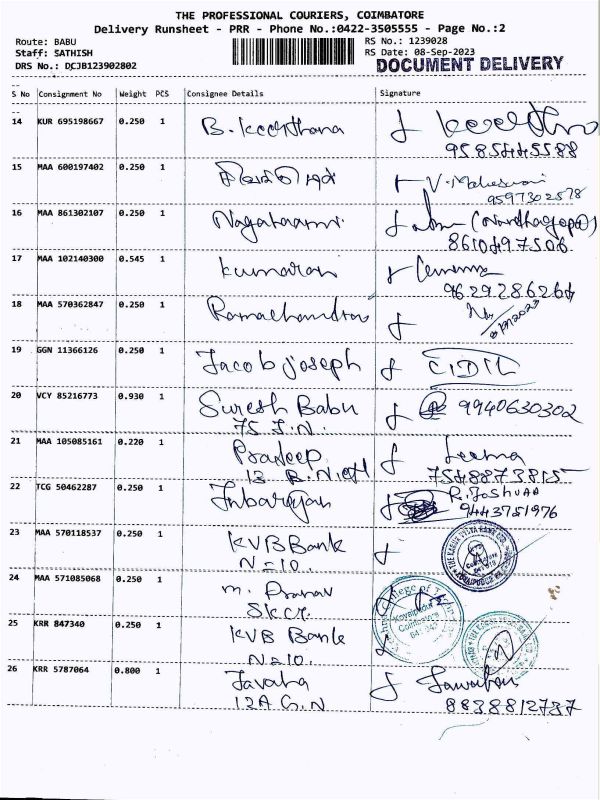 THE PROFESSIONAL COURIERS, COIMBATORE
Delivery Runsheet - PRR - Phone No.:0422-3505555 - Page No.:2
Route: BABU
RS No.: 1239028
Staff: SATHISH
RS Date: 08-Sep-2023
DRS No.: DCJB123902802
DOCUMENT DELIVERY
S No Consignment No Weight PCS Consignee Details Signature
14 KUR 695198667 0.250 1 B. Keerthana
9585445588
15 MAA 600197402 0.250 1 V. Maheswari
9597302578
16 MAA 861302107 0.250 1
8610497506
17 MAA 102140300 0.545 1 Kumaran
9629286264
18 MAA 570362847 0.250 1 Ramachandran
19 GGN 11366126 0.250 1 Jacob Joseph
20 VCY 85216773 0.930 1 Suresh Babu 9940630302
75 J.N.
21 MAA 105085161 0.220 1 Pradeep Leema
7548873815
22 TCG 50462287 0.250 1 Inbarajan R. Joshuaa
9443751976
23 MAA 570118537 0.250 1 KVB Bank
N=10.
24 MAA 571085068 0.250 1 M. Pranav
25 KRR 847340 0.250 1 KVB Bank
N=10.
26 KRR 5787064 0.800 1
12A G.N 8838812737